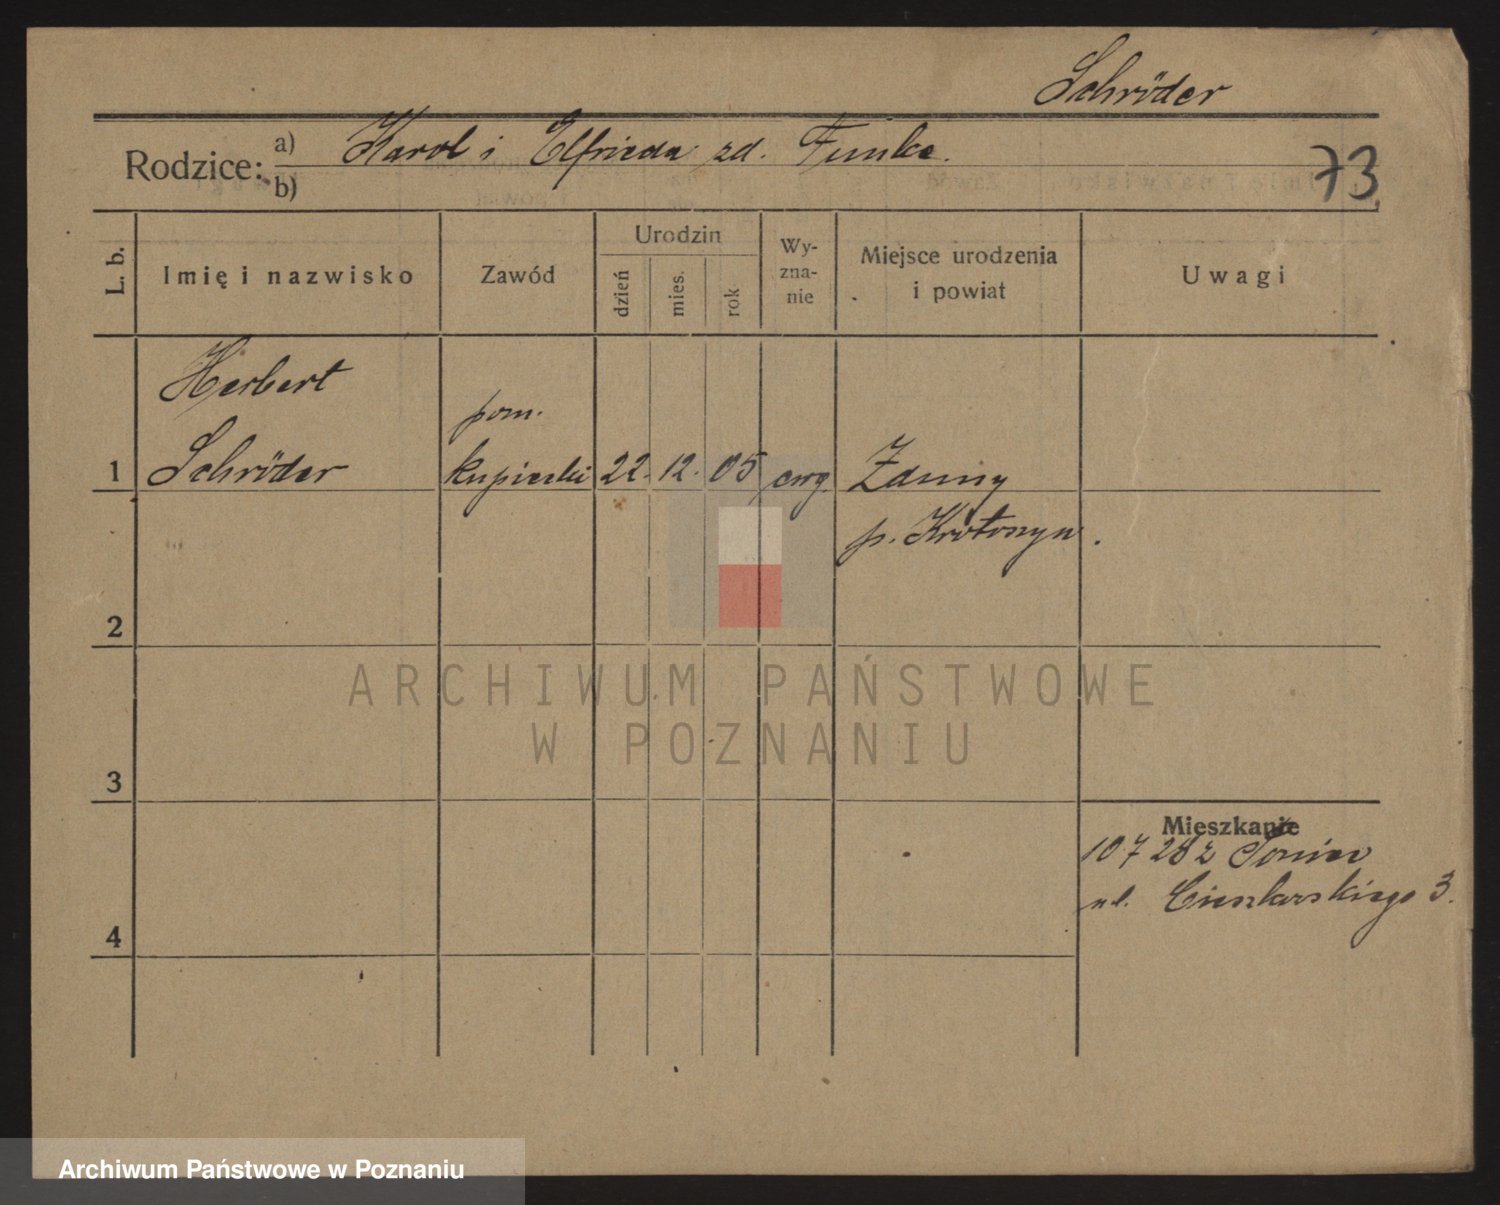 Schröder
Rodzice: a) Karol i Elfrieda zd. Funke.
b)
73
L. b.
Imię i nazwisko
Zawód
Urodzin
dzień
mies.
rok
Wy-
zna-
nie
Miejsce urodzenia
i powiat
Uwagi
Herbert
Schröder
pom.
kupiecki
1
22. 12. 05
ewg.
Zduny
p. Krotoszyn.
2
3
4
Mieszkanie
ul. Cieszkowskiego 3.
ARCHIWUM PAŃSTWOWE
W POZNANIU
Archiwum Państwowe w Poznaniu